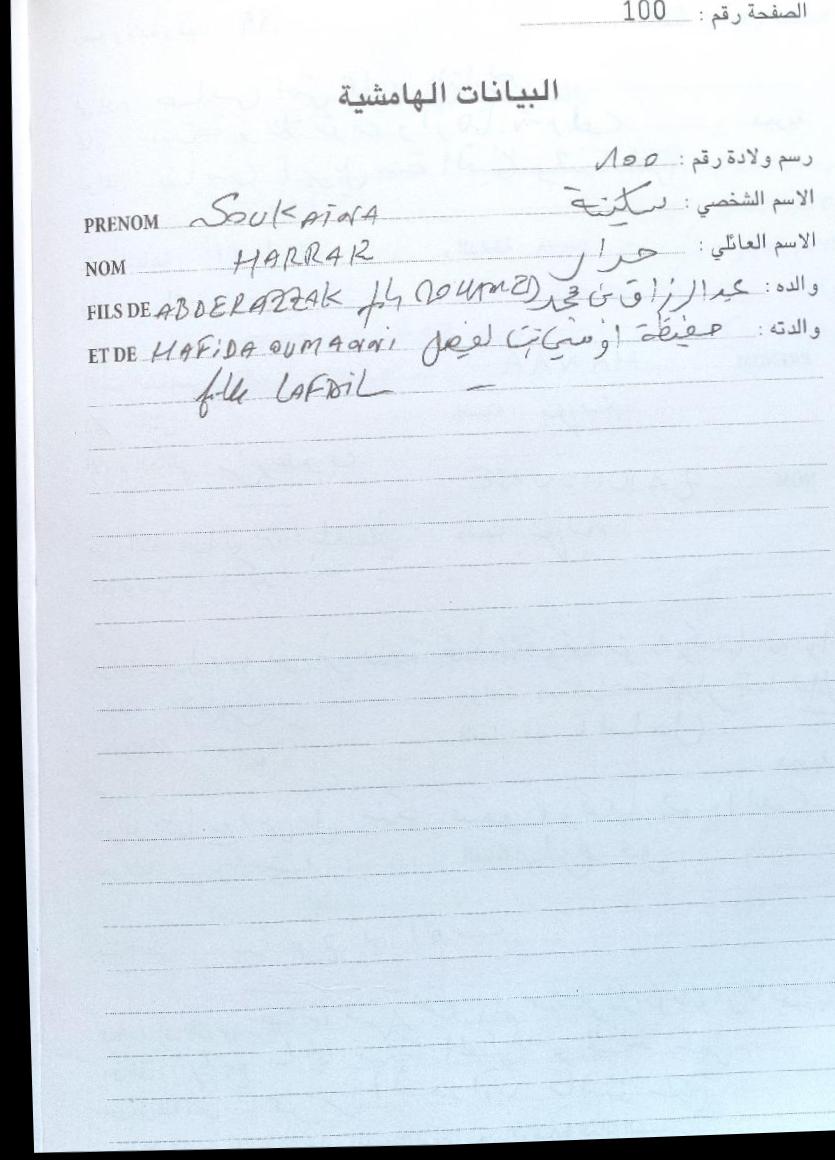 الصفحة رقم : 100
البيانات الهامشية
رسم ولادة رقم : 100
الاسم الشخصي : سكينة PRENOM SOUKAINA
الاسم العائلي : حرار NOM HARRAR
والده : عبد الرزاق بن محمد FILS DE ABDERAZZAK fils MOHAMED
والدته : حفيظة اومني بنت لفضيل ET DE HAFIDA OUMANNI
fille LAFDIL —